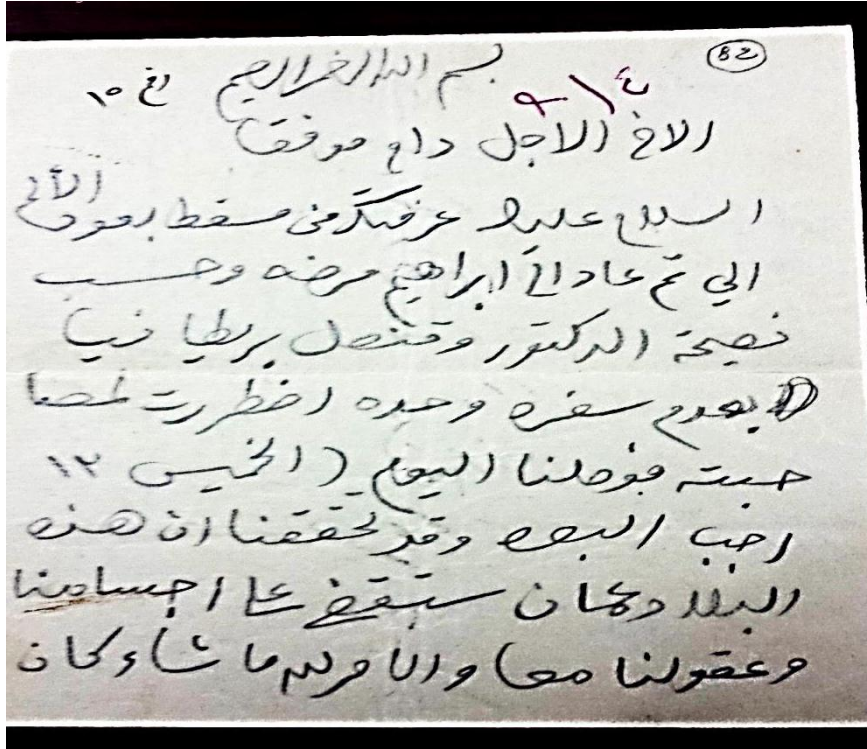 82
بسم الله الرحمن الرحيم
٩/٤
الاخ الاجل دام موفقا
السلام عليكم عرفتكم من مسقط
الي ثم عاد الى ابراهيم مرضه وحسب
نصيحة الدكتور وقنصل بريطانيا
بعدم سفره وحده اضطررت لمصا
حبته فوصلنا اليوم (الخميس ١٢
رجب البصره وقد تحققنا ان هذه
البلاد وعمان ستقضي على اجسامنا
وعقولنا معا والامر لله ما شاء كان